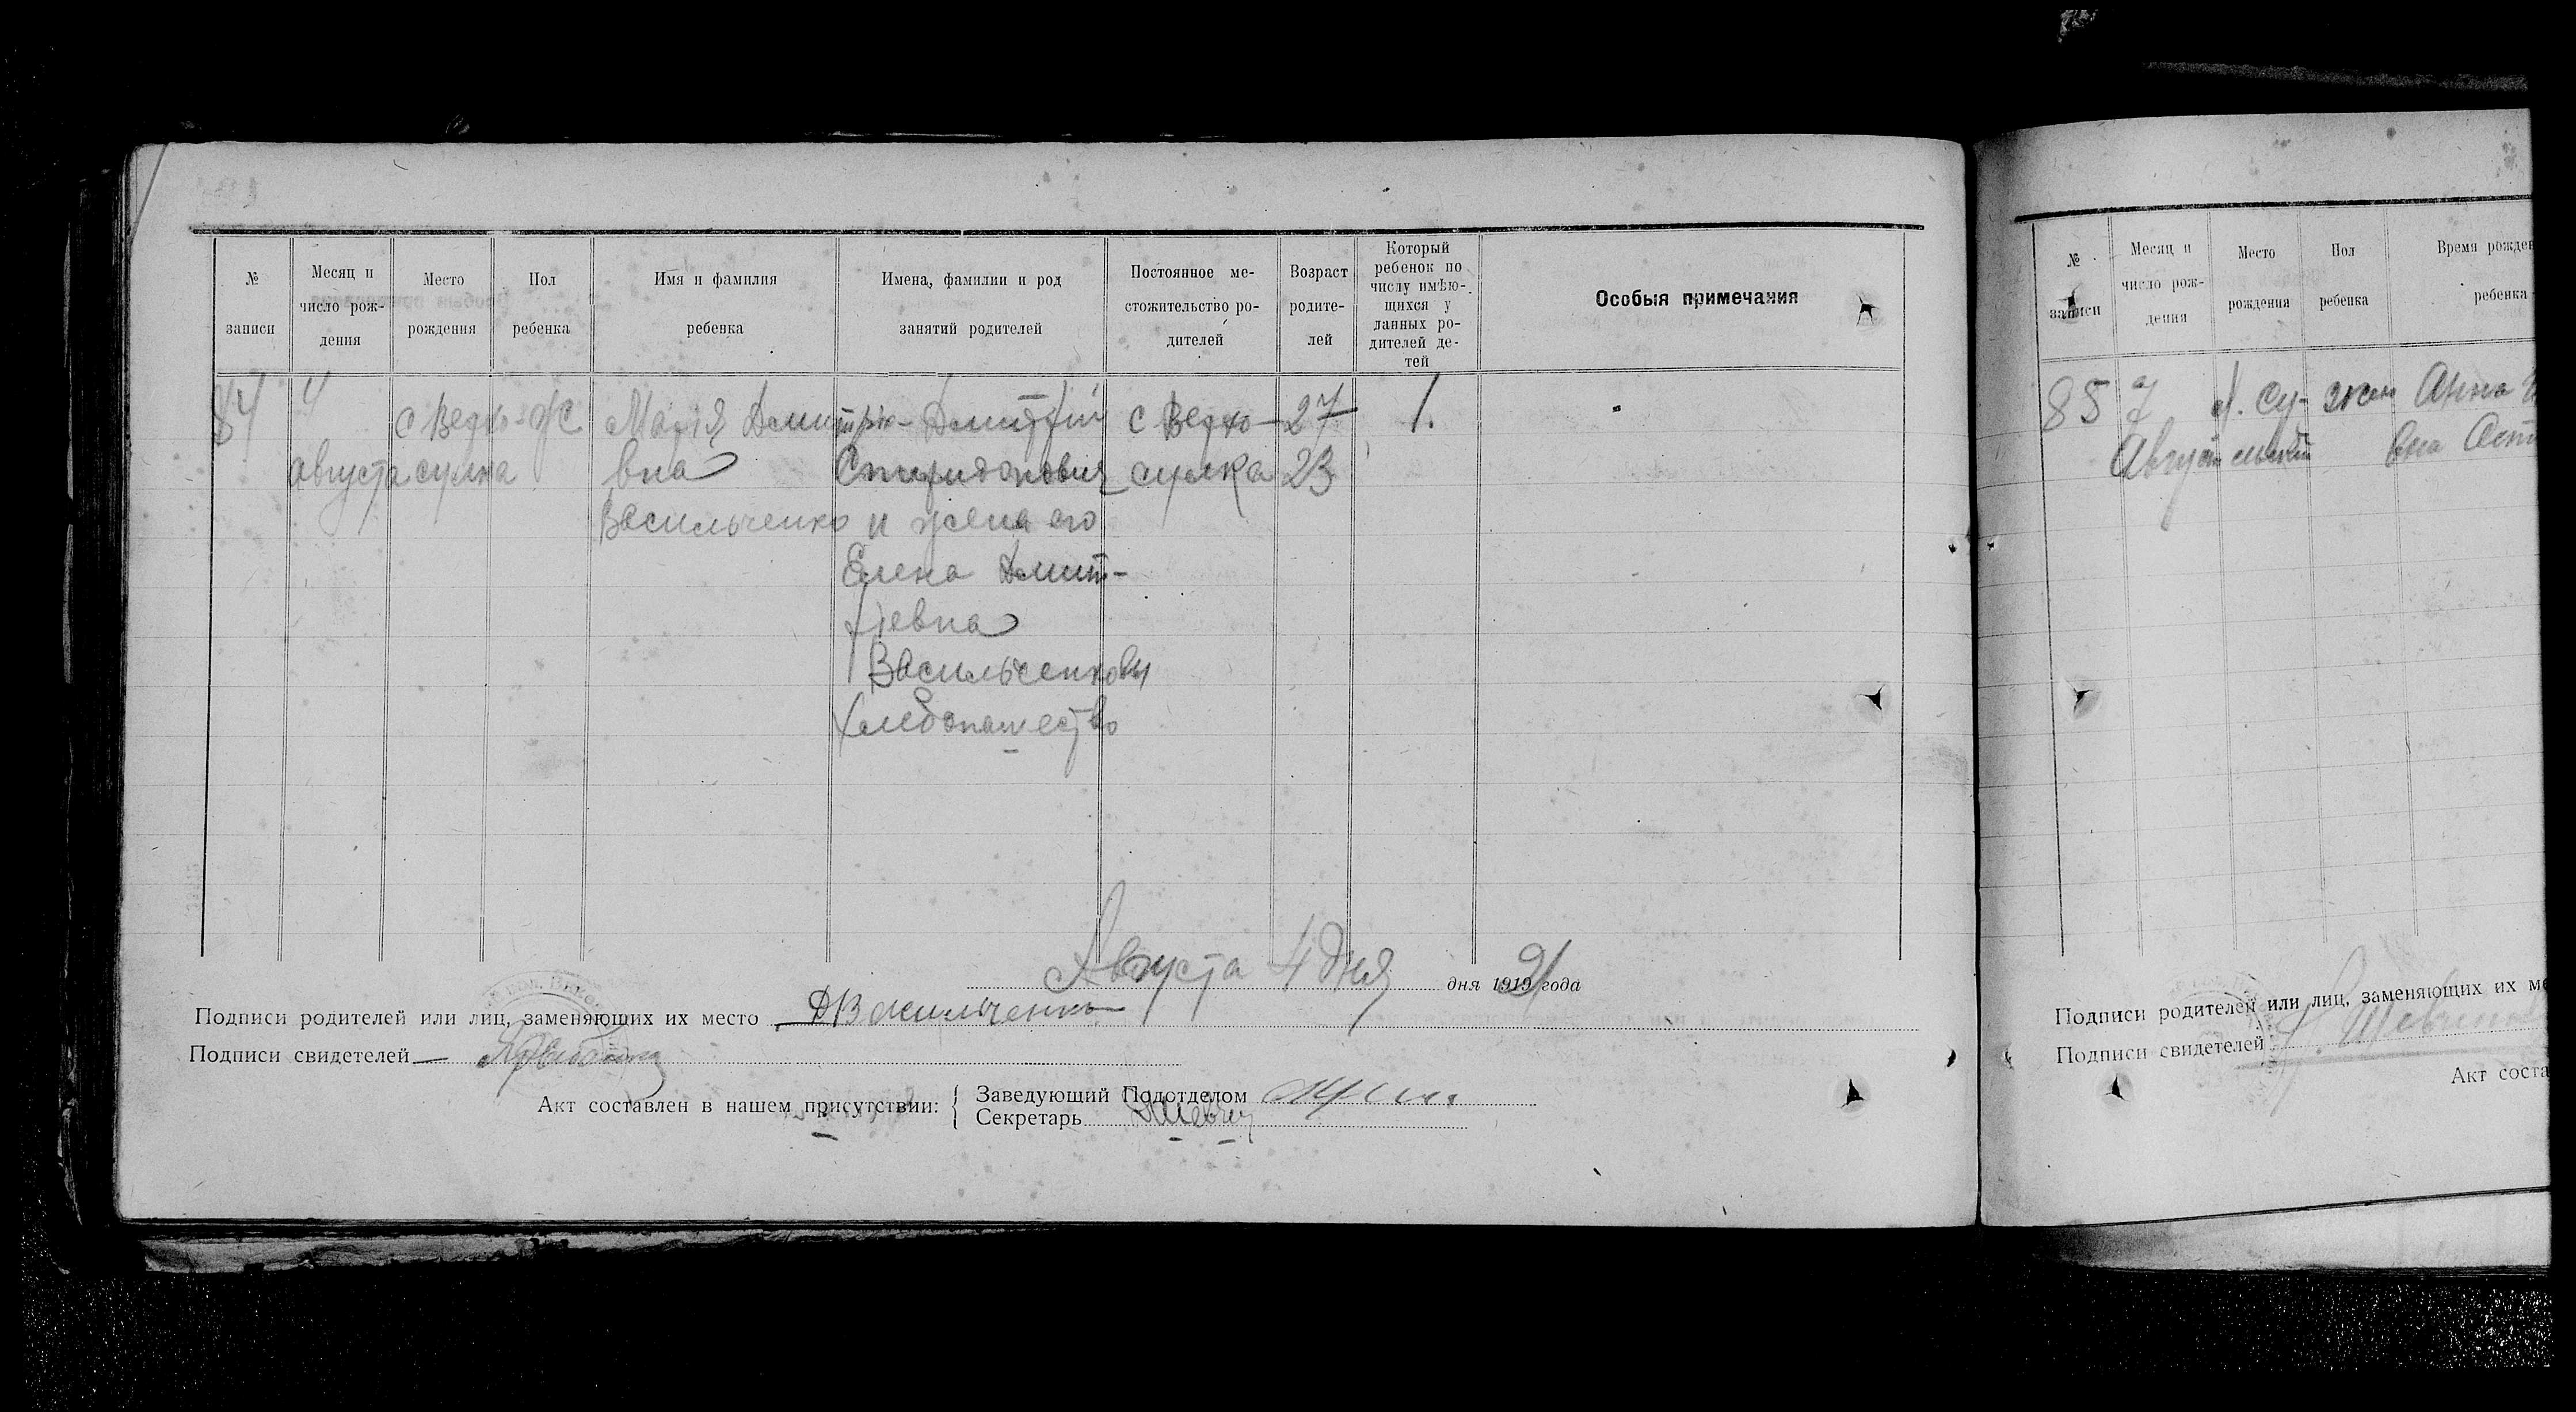 № записи
Месяц и число рождения
Место рождения
Пол ребенка
Имя и фамилия ребенка
Имена, фамилии и род занятий родителей
Постоянное местожительство родителей
Возраст родителей
Который ребенок по числу имѣющихся у данных родителей детей
Особыя примечания
84 4 с Верхо- ж Марія Дмитріе- Дмитрій с Верхо- 27 1.
августа сулка вна Спиридонович сулка 23
Васильченко и жена его
Елена Дмит-
ріевна
Васильченковы
хлебопашество
Августа 4 дня дня 1921 года
Подписи родителей или лиц, заменяющих их место ДВасильченко
Подписи свидетелей
Акт составлен в нашем присутствии:
Заведующий Подотделом
Секретарь
№ записи
Месяц и число рождения
Место рождения
Пол ребенка
Время рожден
ребенка
85 7 жен Анна
Август вна
Подписи родителей или лиц, заменяющих их ме
Подписи свидетелей
Акт соста